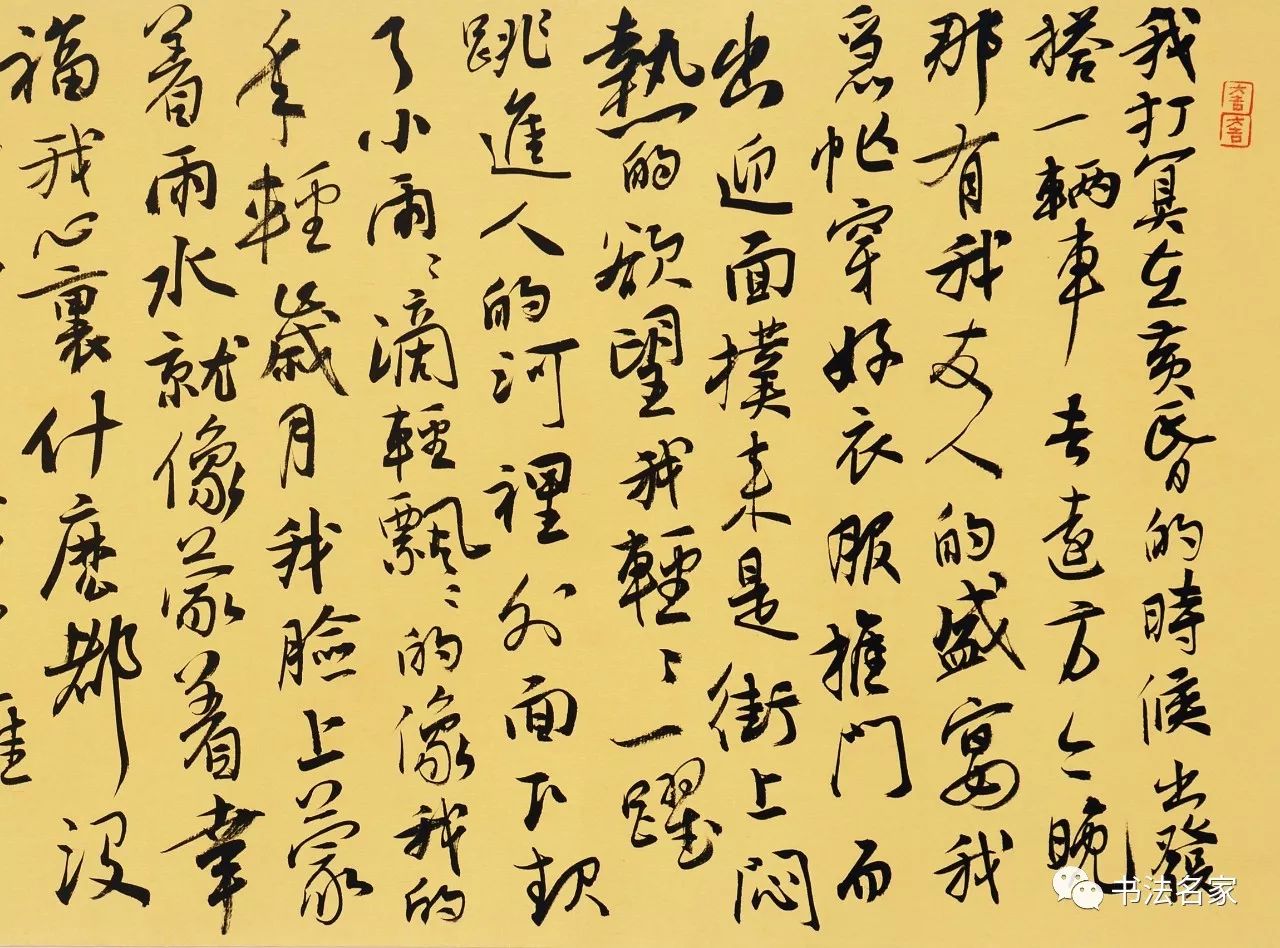 大吉
大吉
我打算在黄昏的時候出發
搭一辆車去遠方今晚
那有我友人的盛宴我
急忙穿好衣服推門而
出迎面撲来是街上悶
熱的欲望我輕々一躍
跳進人的河裡外面下起
了小雨々滴輕飄々的像我的
年輕歲月我臉上蒙
着雨水就像蒙着幸
福我心裏什麽都没
书法名家